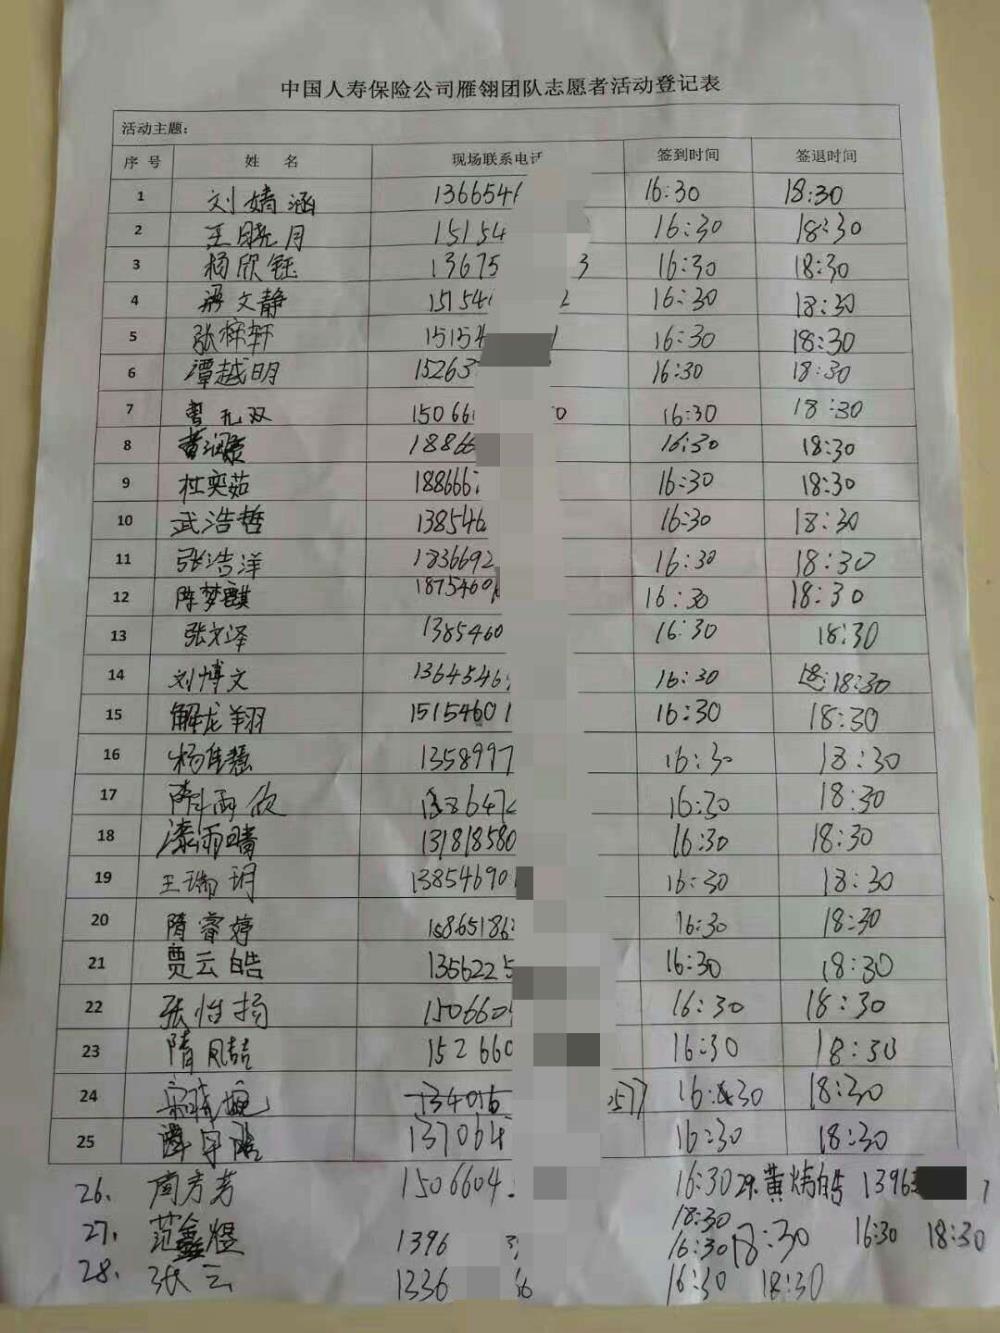 中国人寿保险公司雁翎团队志愿者活动登记表
活动主题：
序号 姓名 现场联系电话 签到时间 签退时间
1 刘婧涵 1366546 16:30 18:30
2 王晓月 15154 16:30 18:30
3 杨欣钰 13675 3 16:30 18:30
4 梁文静 15154 2 16:30 18:30
5 张梓轩 15154 16:30 18:30
6 谭越明 15263 16:30 18:30
7 曹无双 15066 0 16:30 18:30
8 18866 16:30 18:30
9 杜奕茹 188666 16:30 18:30
10 武浩哲 138546 16:30 18:30
11 张浩洋 1836692 16:30 18:30
12 陈梦麒 1875460 16:30 18:30
13 张文泽 1385460 16:30 18:30
14 刘博文 1364546 16:30 18:30
15 解龙翔 15154601 16:30 18:30
16 杨佳慧 1358997 16:30 18:30
17 隋雨欣 138647 16:30 18:30
18 漆雨晴 131818580 16:30 18:30
19 王瑞玥 13854690 16:30 18:30
20 隋睿婷 15865186 16:30 18:30
21 贾云皓 1356225 16:30 18:30
22 张怡扬 150660 16:30 18:30
23 隋凤喆 152660 16:30 18:30
24 2577 16:30 18:30
25 137064 16:30 18:30
26. 周芳芳 1506604 16:30 29. 黄炜皓 1396 7
18:30
27. 范鑫煜 1396 16:30 18:30 16:30 18:30
28. 张云 1336 6 16:30 18:30